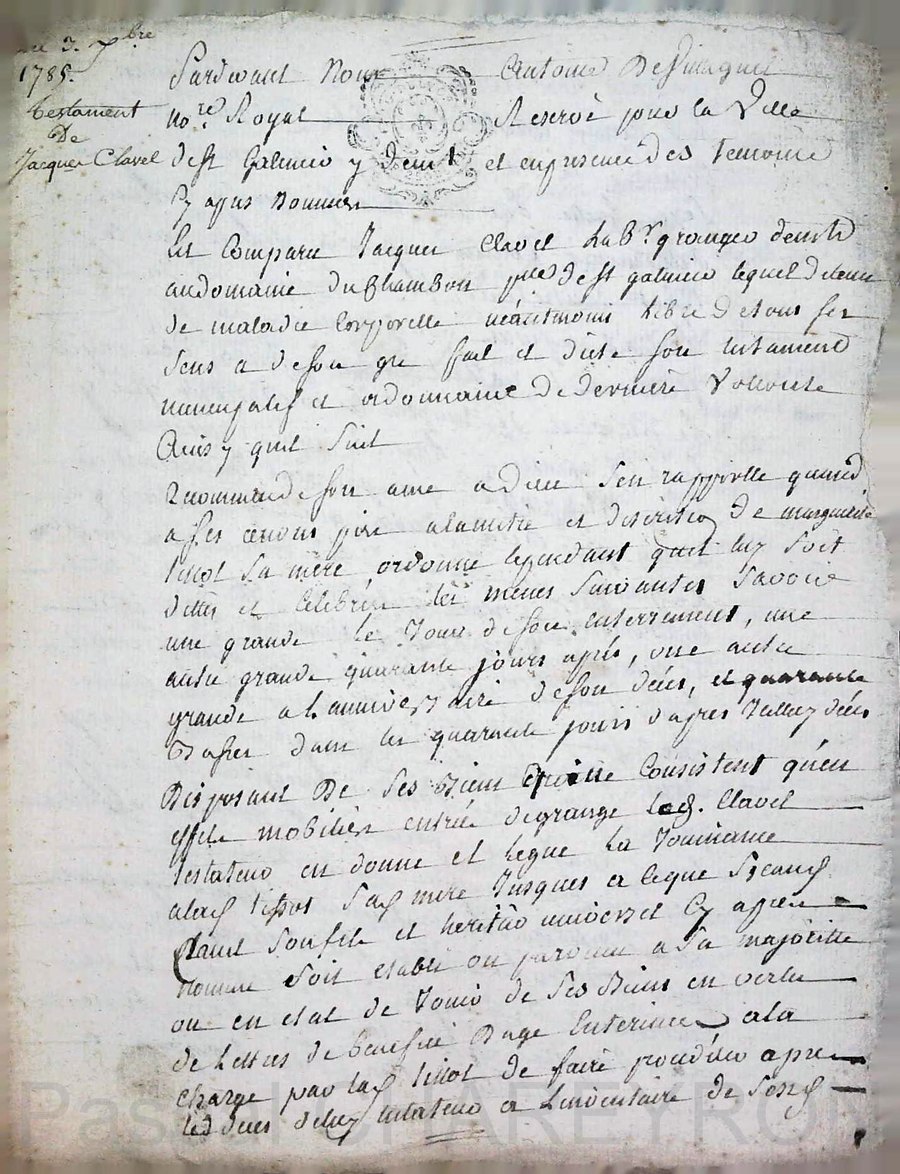 3. xbre
1785.
testament
De
Jacques Clavel
Pardevant Nous Antoine
no.re Royal Reservé pour la Ville
de st Galmier y dem.t et en presence des temoins
Cy apres Nommes
Est Comparu Jacques Clavel Lab.r granger demt
au domaine du Chambon p.sse de st galmier lequel detenu
de maladie Corporelle néantmoins libre de tous ses
sens a de son gré fait et dicté son testament
nuncupatif et ordonnance de derniere Volonté
Ainsy quil suit
Recommande son ame a dieu s'en rapporte quand
a ses œuvres pies a la et discretion de marguerite
tissot sa mère, ordonne cependant quil luy soit
dittes et Célébrées les messes suivantes savoir
une grande le Jour de son enterrement, une
autre grande quarante jours après, une autre
grande a l'anniversaire de son déces, et quarante
Basses dans les quarante jours d'apres Jcelluy déces
Disposant De ses Biens Consistent qu'en
effets mobiliers entrée de grange led. Clavel
testateur en donne et legue la Jouissance
a lad tissot sad mere Jusques a ceque
Clavel son fils et heritier universel Cy apres
Nommé soit etabli ou parvenu a sa majoritte
ou en etat de Jouir de ses Biens en vertu
de Lettres de benefice Dage Enterinees a la
charge par lad tissot de faire proceder apres
led déces dudit testateur a Linventaire de sesd
Pascal CHAREYRON